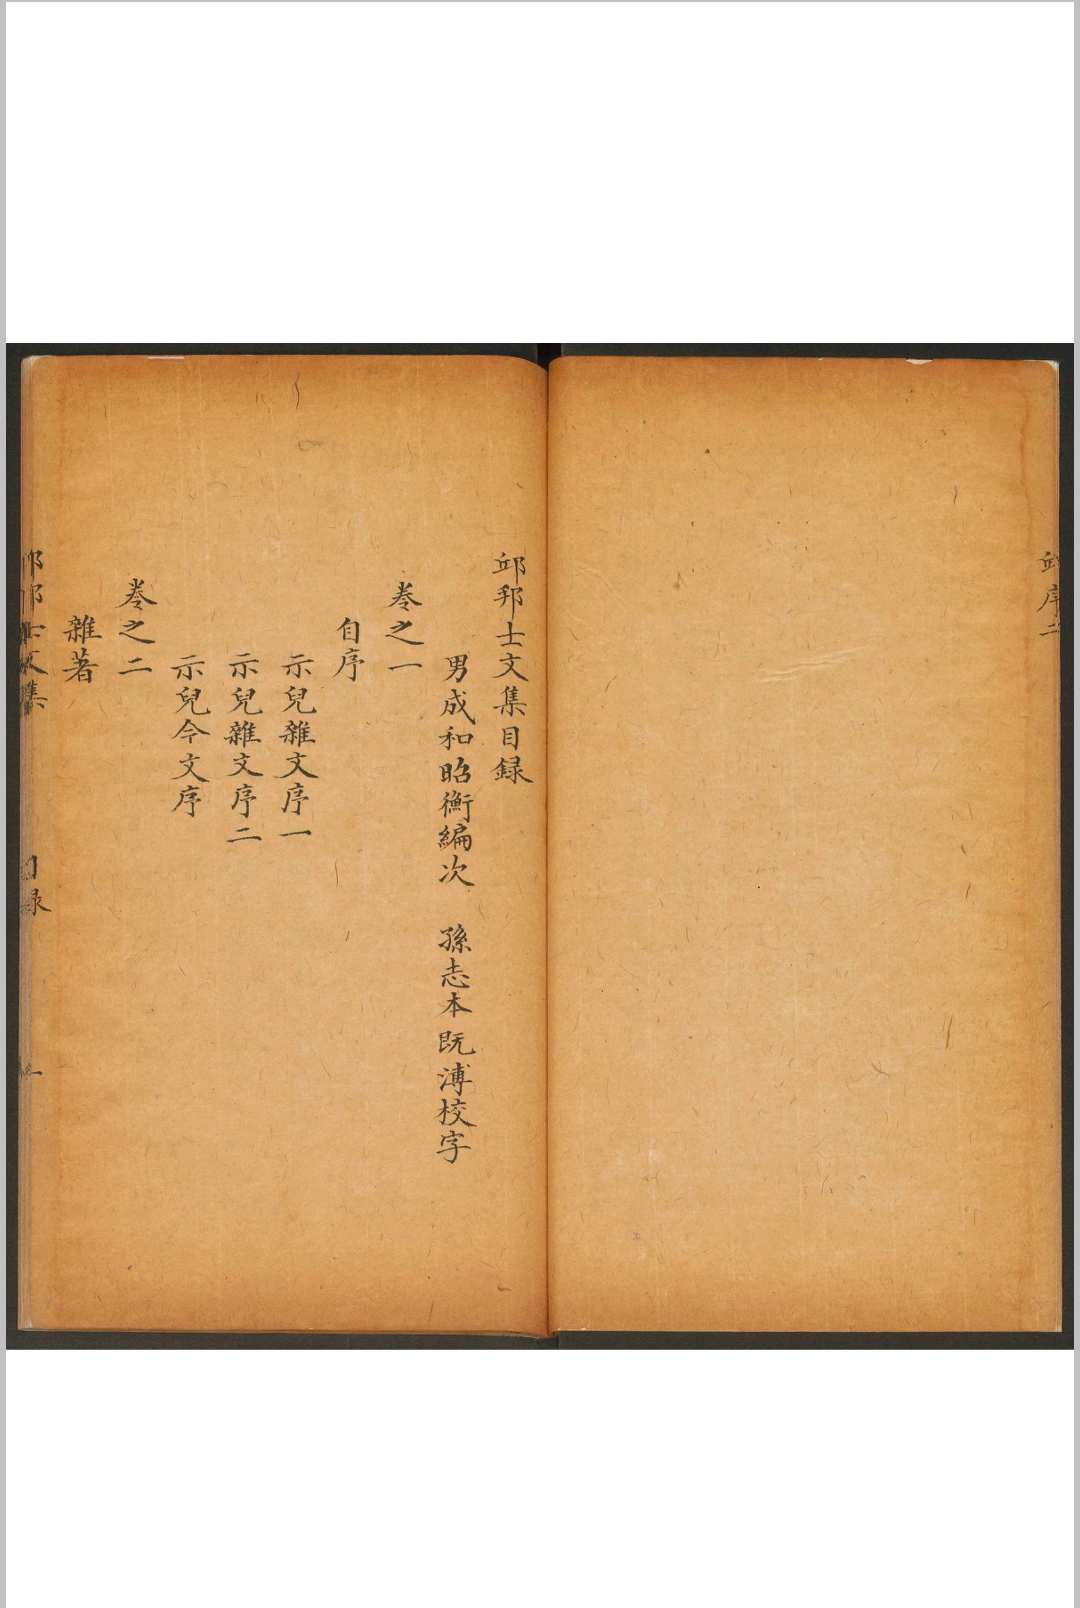 邱序二
邱邦士文集目録
男成和昭衡編次　孫志本既溥校字
卷之一
自序
示兒雜文序一
示兒雜文序二
示兒今文序
卷之二
雜著
邱邦士文集　目録　一